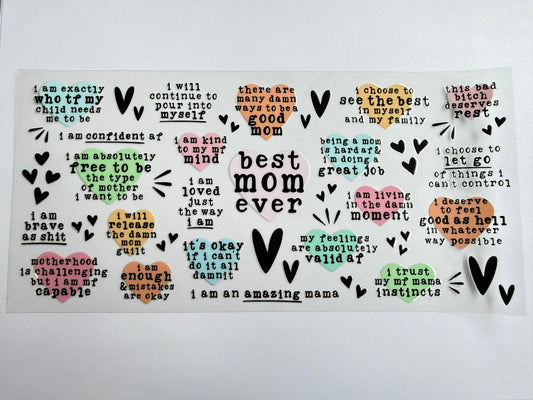 i am exactly
who tf my
child needs
me to be
i will
continue to
pour into
myself
there are
many damn
ways to be a
good
mom
i choose to
see the best
in myself
and my family
this bad
bitch
deserves
rest
i am confident af
i am kind
to my mf
mind
best
mom
ever
being a mom
is hard af &
i'm doing a
great job
i choose to
let go
of things i
can't control
i am absolutely
free to be
the type
of mother
i want to be
i am
loved
just
the way
i am
i am living
in the damn
moment
i deserve
to feel
good as hell
in whatever
way possible
i am
brave
as shit
i will
release
the damn
mom
guilt
it's okay
if i can't
do it all
damnit
my feelings
are absolutely
valid af
motherhood
is challenging
but i am mf
capable
i am
enough
& mistakes
are okay
i am an amazing mama
i trust
my mf mama
instincts